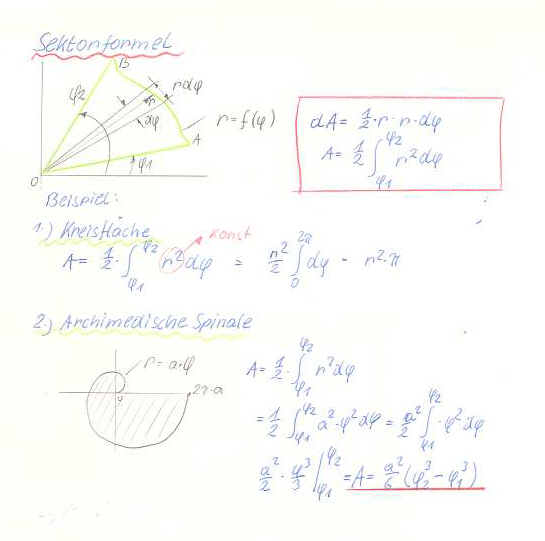 Sektorformel
B
φ2
r
r dφ
dφ
r = f(φ)
A
φ1
0
dA = 1/2 · r · r · dφ
A = 1/2 ∫_φ1^φ2 r² dφ
Beispiel:
1.) Kreisfläche
konst
A = 1/2 · ∫_φ1^φ2 r² dφ = r²/2 ∫_0^2π dφ = r² · π
2.) Archimedische Spirale
r = a · φ
0
2π · a
A = 1/2 · ∫_φ1^φ2 r² dφ
= 1/2 ∫_φ1^φ2 a² · φ² dφ = a²/2 ∫_φ1^φ2 · φ² dφ
a²/2 · φ³/3 |_φ1^φ2 = A = a²/6 (φ2³ − φ1³)